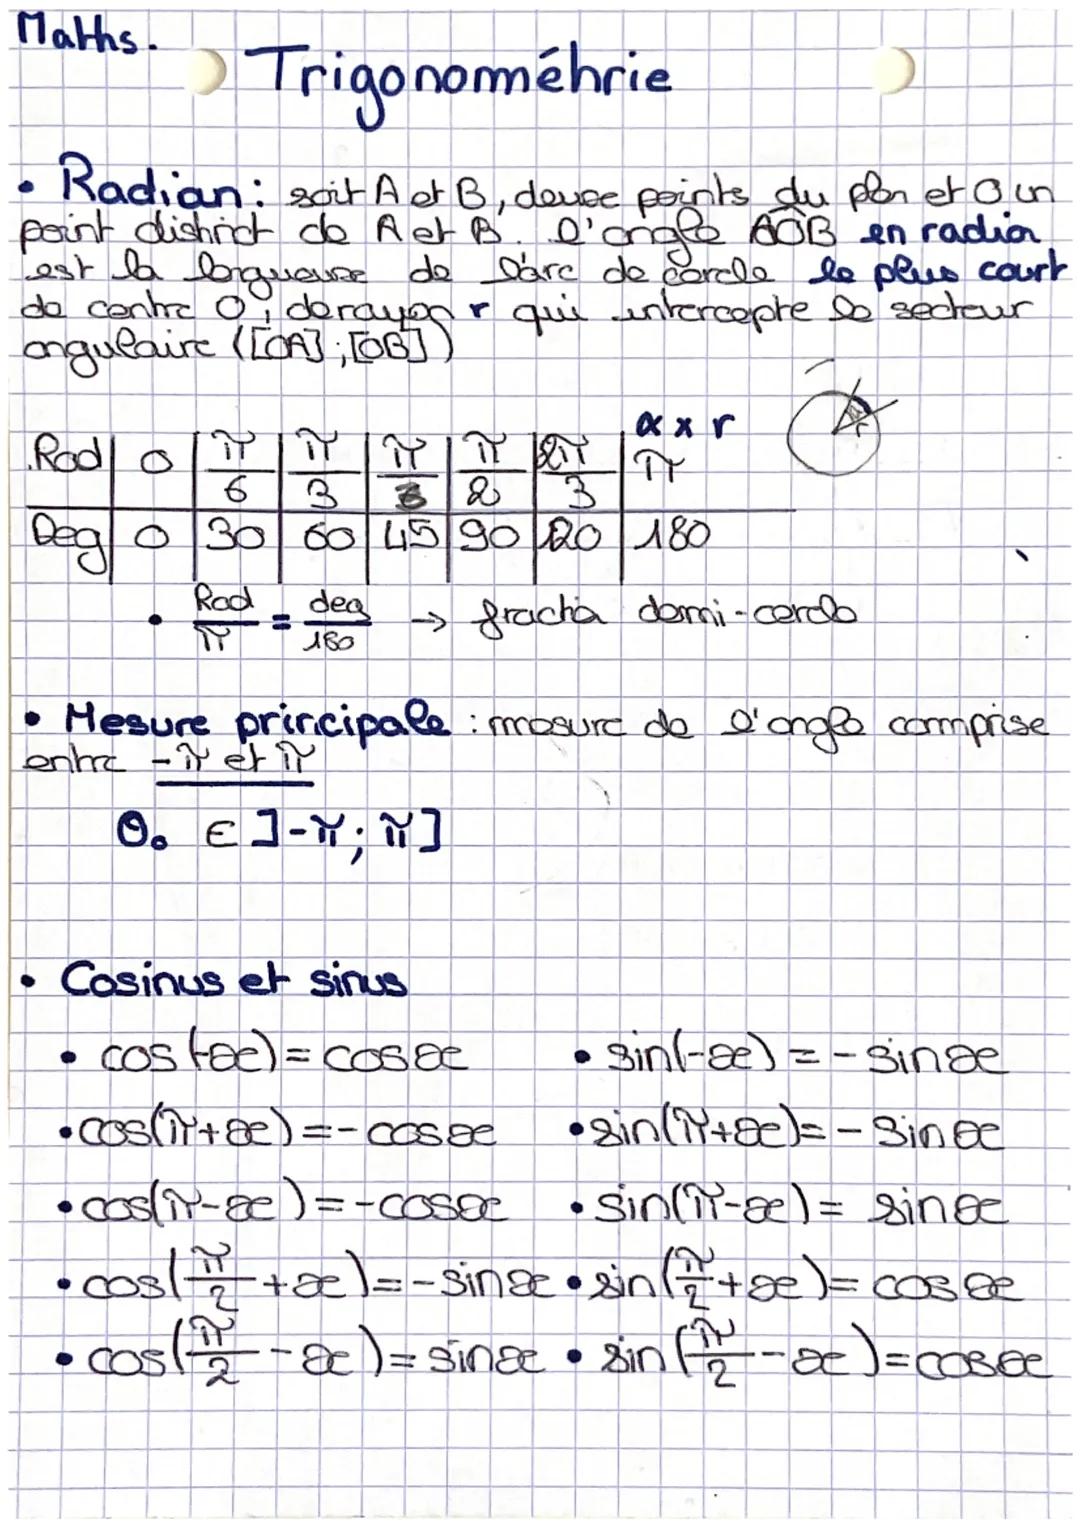 Maths.
Trigonométrie
• Radian : soit A et B, deux points du plan et O un
point distinct de A et B. l'angle AÔB en radian
est la longueur de l'arc de cercle le plus court
de centre O, de rayon r qui intercepte le secteur
angulaire ([OA] ; [OB])
α x r
Rad | 0 | π/6 | π/3 | π/ | π/2 | 2π/3 | π
Deg | 0 | 30 | 60 | 45 | 90 | 120 | 180
• Rad/π = deg/180 → fraction demi-cercle
• Mesure principale : mesure de l'angle comprise
entre -π et π
θ₀ ∈ ]-π ; π]
• Cosinus et sinus
• cos(-x) = cos x • sin(-x) = - sin x
• cos(π+x) = - cos x • sin(π+x) = - sin x
• cos(π-x) = - cos x • sin(π-x) = sin x
• cos(π/2 + x) = - sin x • sin(π/2 + x) = cos x
• cos(π/2 - x) = sin x • sin(π/2 - x) = cos x